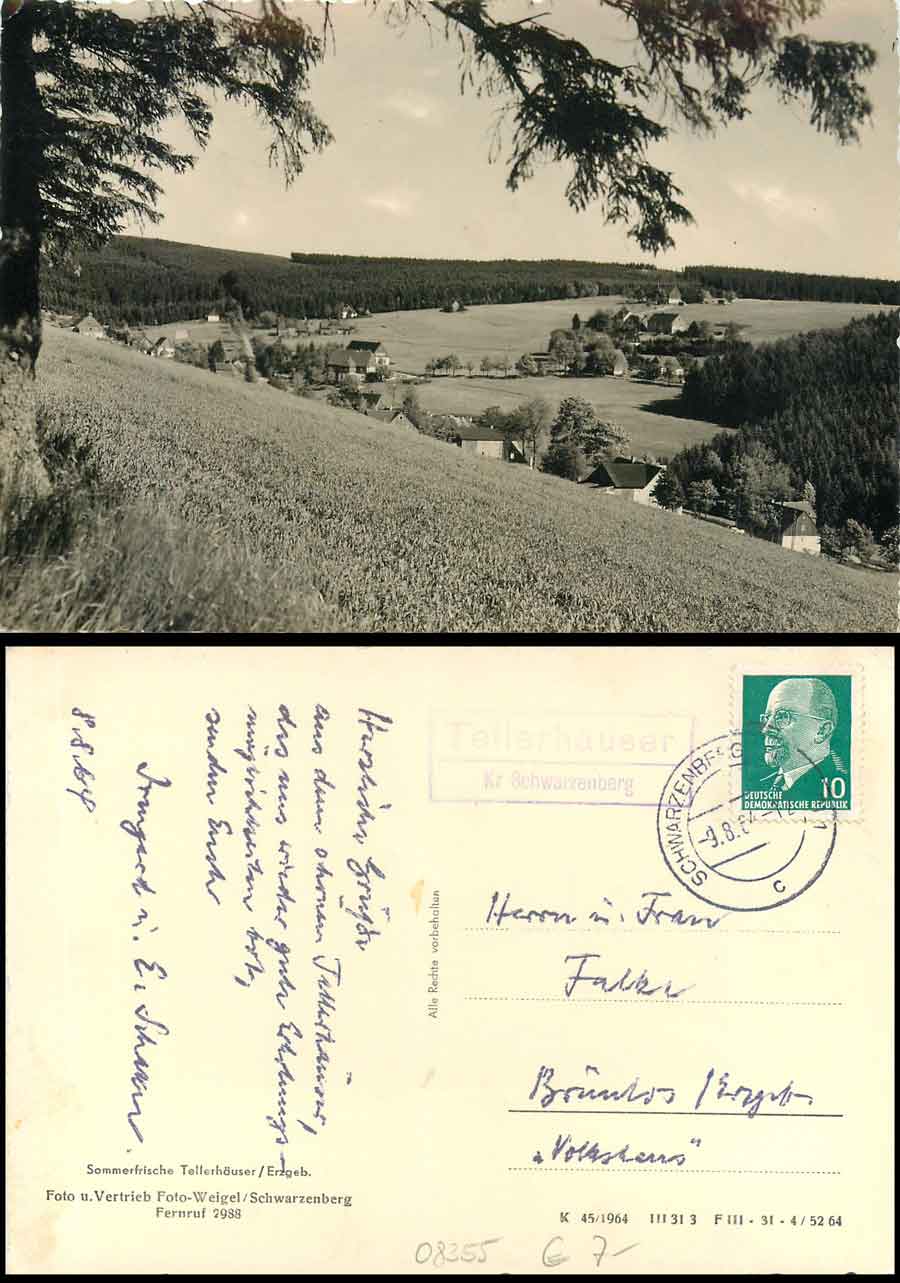 Tellerhäuser
Kr Schwarzenberg
SCHWARZENBERG
-9.8.64-12
c
DEUTSCHE
DEMOKRATISCHE REPUBLIK
10
Herzliche Grüße
aus dem schönen Tellerhäuser,
das uns wieder gute Erholungs-
möglichkeiten bot,
senden Euch
8.8.64
Irmgard u. E.
Alle Rechte vorbehalten
Herrn u. Frau
Falke
Brünlos/Erzgeb.
"Volkshaus"
Sommerfrische Tellerhäuser/Erzgeb.
Foto u.Vertrieb Foto-Weigel/Schwarzenberg
Fernruf 2988
K 45/1964 III 31 3 F III - 31 - 4/52 64
08355 € 7-